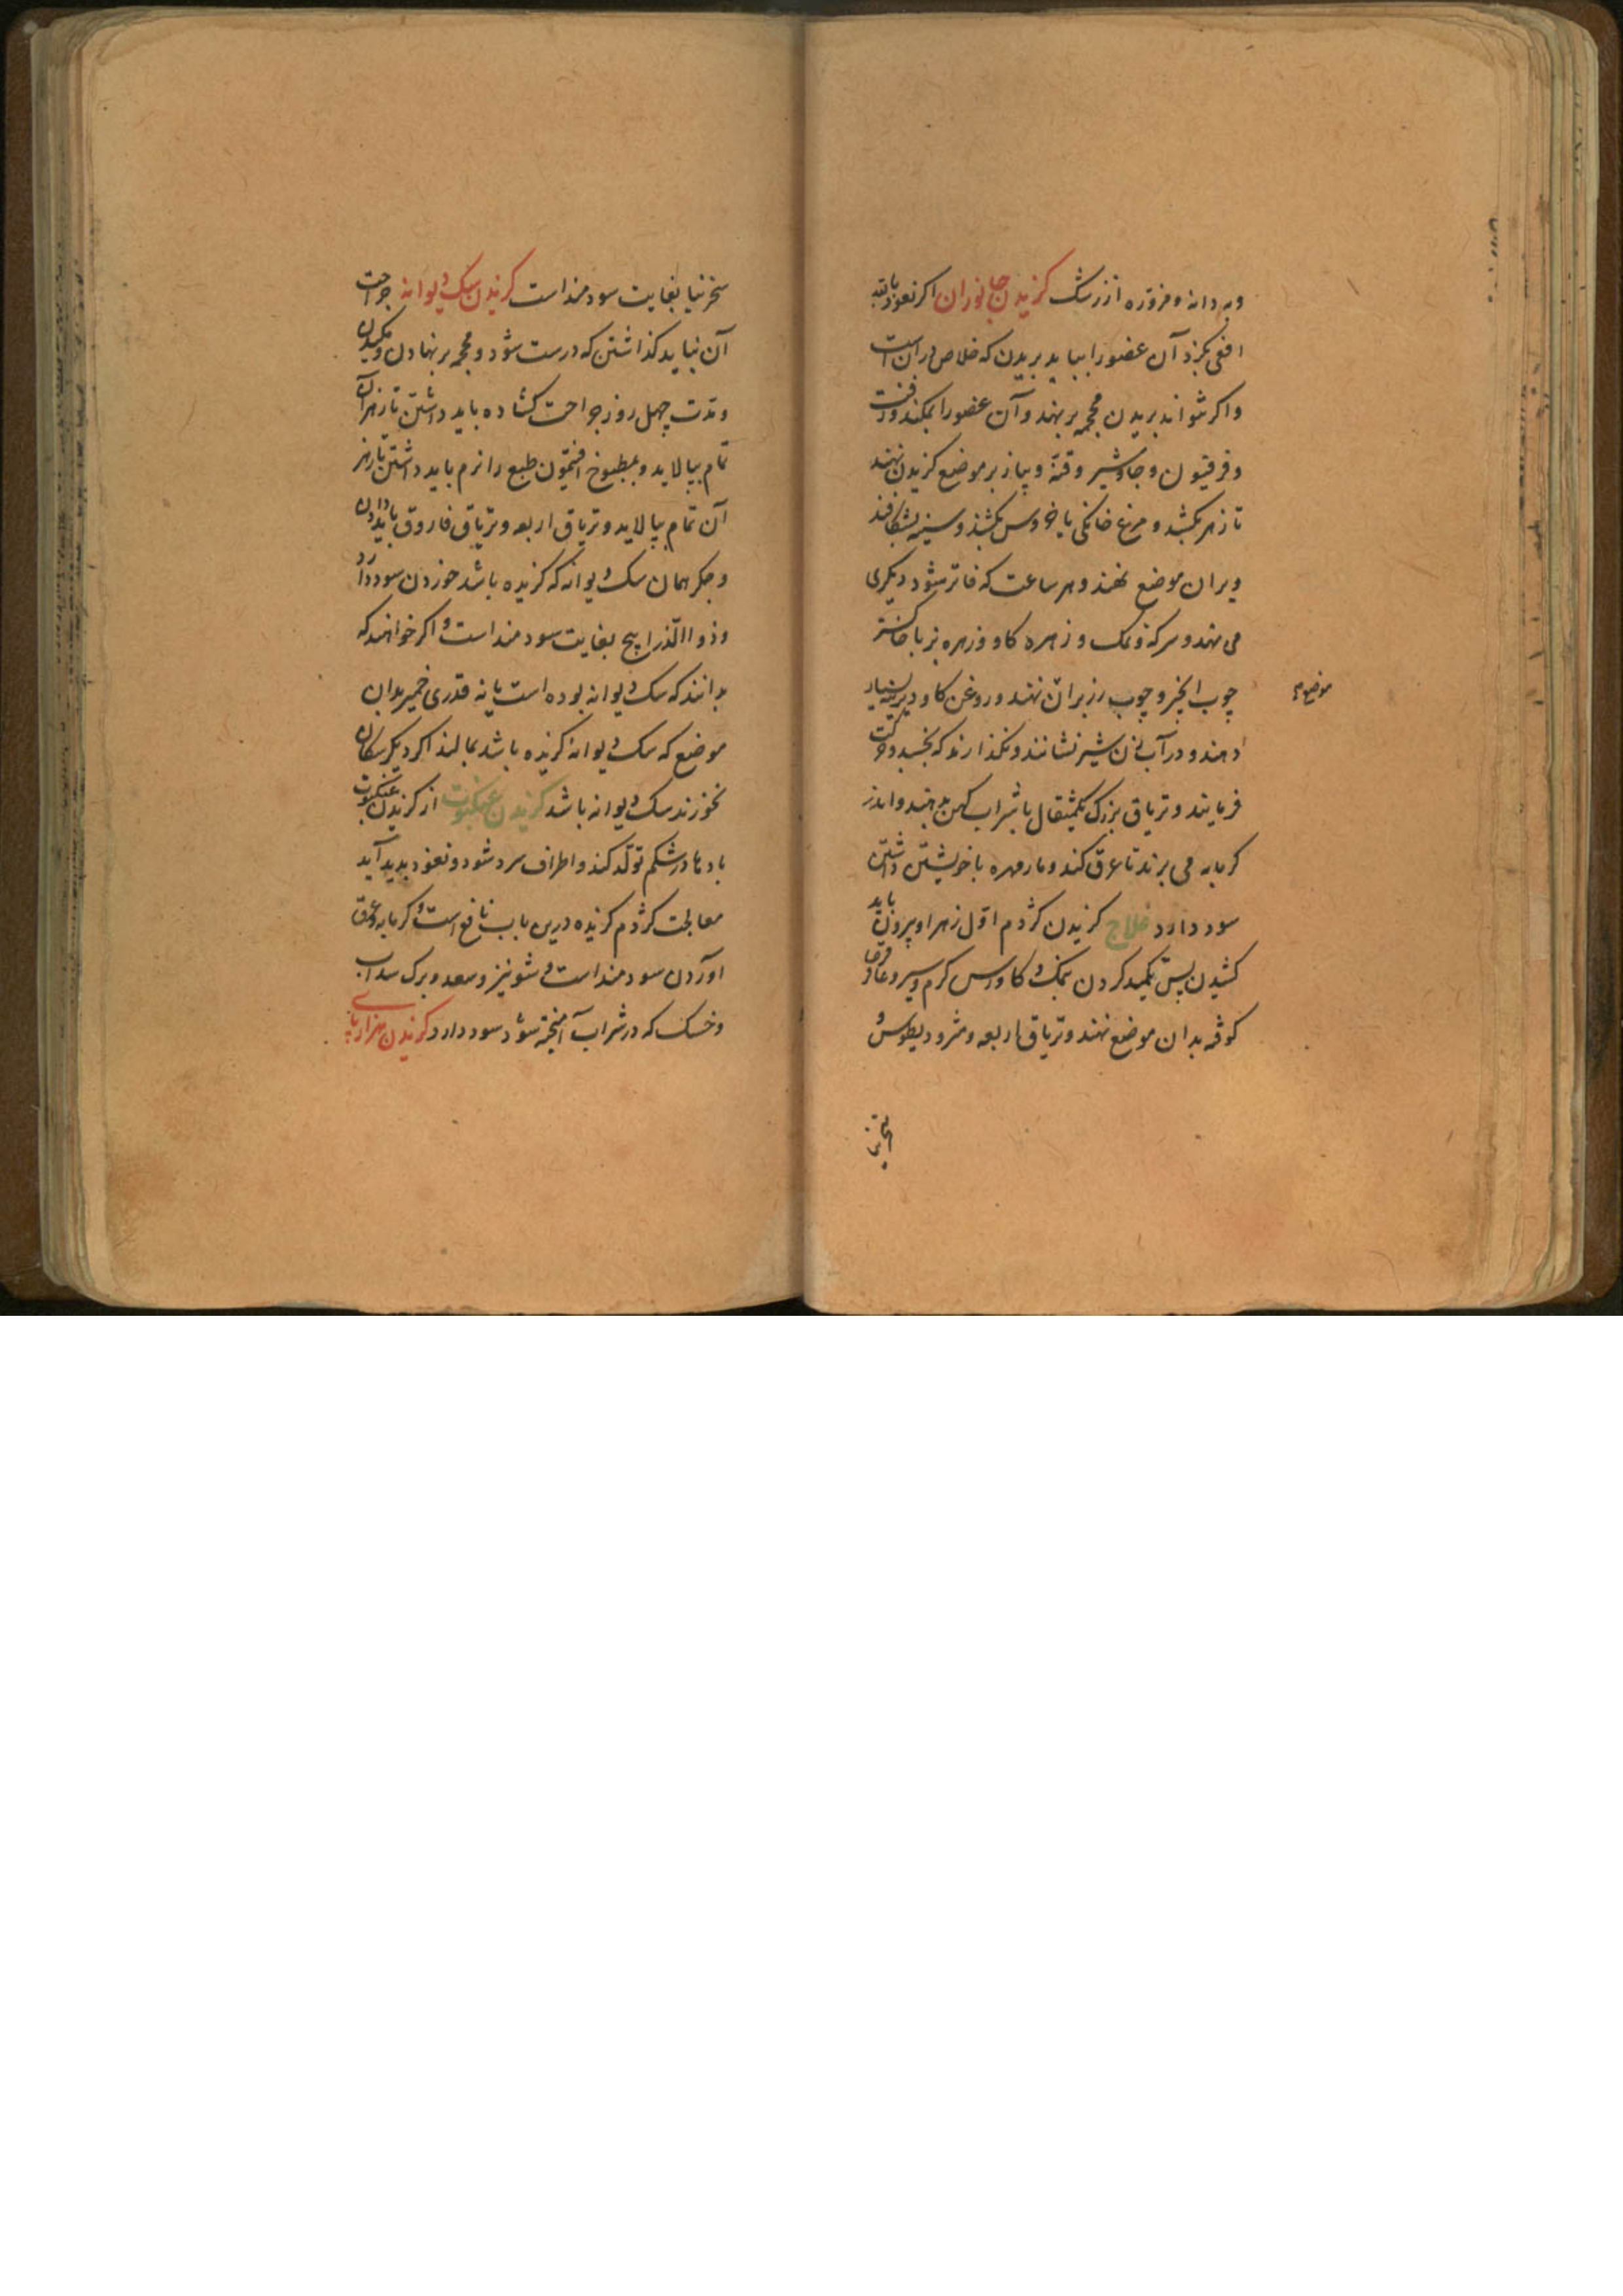 وبه دانه ومزوّره از زرشک کزیدن جانوران اکر نعوذ بالله
افعی بکزد آن عضو را بباید بریدن که خلاص در آن است
واکر نتوانند بریدن محجمه بر نهند وآن عضو را بمکند وزفت
وفرفیون وجاوشیر وقنّه وپیاز بر موضع کزیدن نهند
تا زهر بکشد ومرغ خانکی یا خروس بکشند وسینه بشکافند
وبران موضع نهند وهر ساعت که فاتر شود دیکری
می نهند وسرکه ونمک وزهره کاو وزهره بز با خاکستر
چوب انجیر وچوب رز بران نهند وروغن کاو دیرینه بسیار
موضوع
دهند ودر آب زن شیر نشانند ونکذارند که بخسبد وحرکت
فرمایند وتریاق بزرک یکمثقال با شراب کهن بدهند واندر
کرمابه می برند تا عرق کند ومار مهره با خویشتن داشتن
سود دارد علاج کزیدن کژدم اوّل زهر او بیرون باید
کشیدن پس تکمید کردن بنمک وکاورس کرم وسیر وعاقرقرحا
کوفته بدان موضع نهند وتریاق اربعه ومثرودیطوس و
سخزنیا بغایت سودمند است کزیدن سک دیوانه جراحت
آن نباید کذاشتن که درست شود ومحجمه بر نهادن ومکیدن
ومدّت چهل روز جراحت کشاده باید داشتن تا زهر آن
تمام بپالاید وبمطبوخ افتیمون طبع را نرم باید داشتن تا زهر
آن تمام بپالاید وتریاق اربعه وتریاق فاروق باید دادن
وجکر همان سک دیوانه که کزیده باشد خوردن سود دارد
وذو االذراریح بغایت سودمند است واکر خواهند که
بدانند که سک دیوانه بوده است یا نه قدری خمیر بدان
موضع که سک دیوانه کزیده باشد بمالند اکر دیکر سکان
نخورند سک دیوانه باشد کزیدن عنکبوت از کزیدن عنکبوت
بادها در شکم تولّد کند واطراف سرد شود ونعوذ بدید آید
معالجت کژدم کزیده درین باب نافع است وکرمابه وعرق
آوردن سودمند است وشونیز وسعد وبرک سداب
وخسک که در شراب آمیخته شود سود دارد کزیدن هزار پای